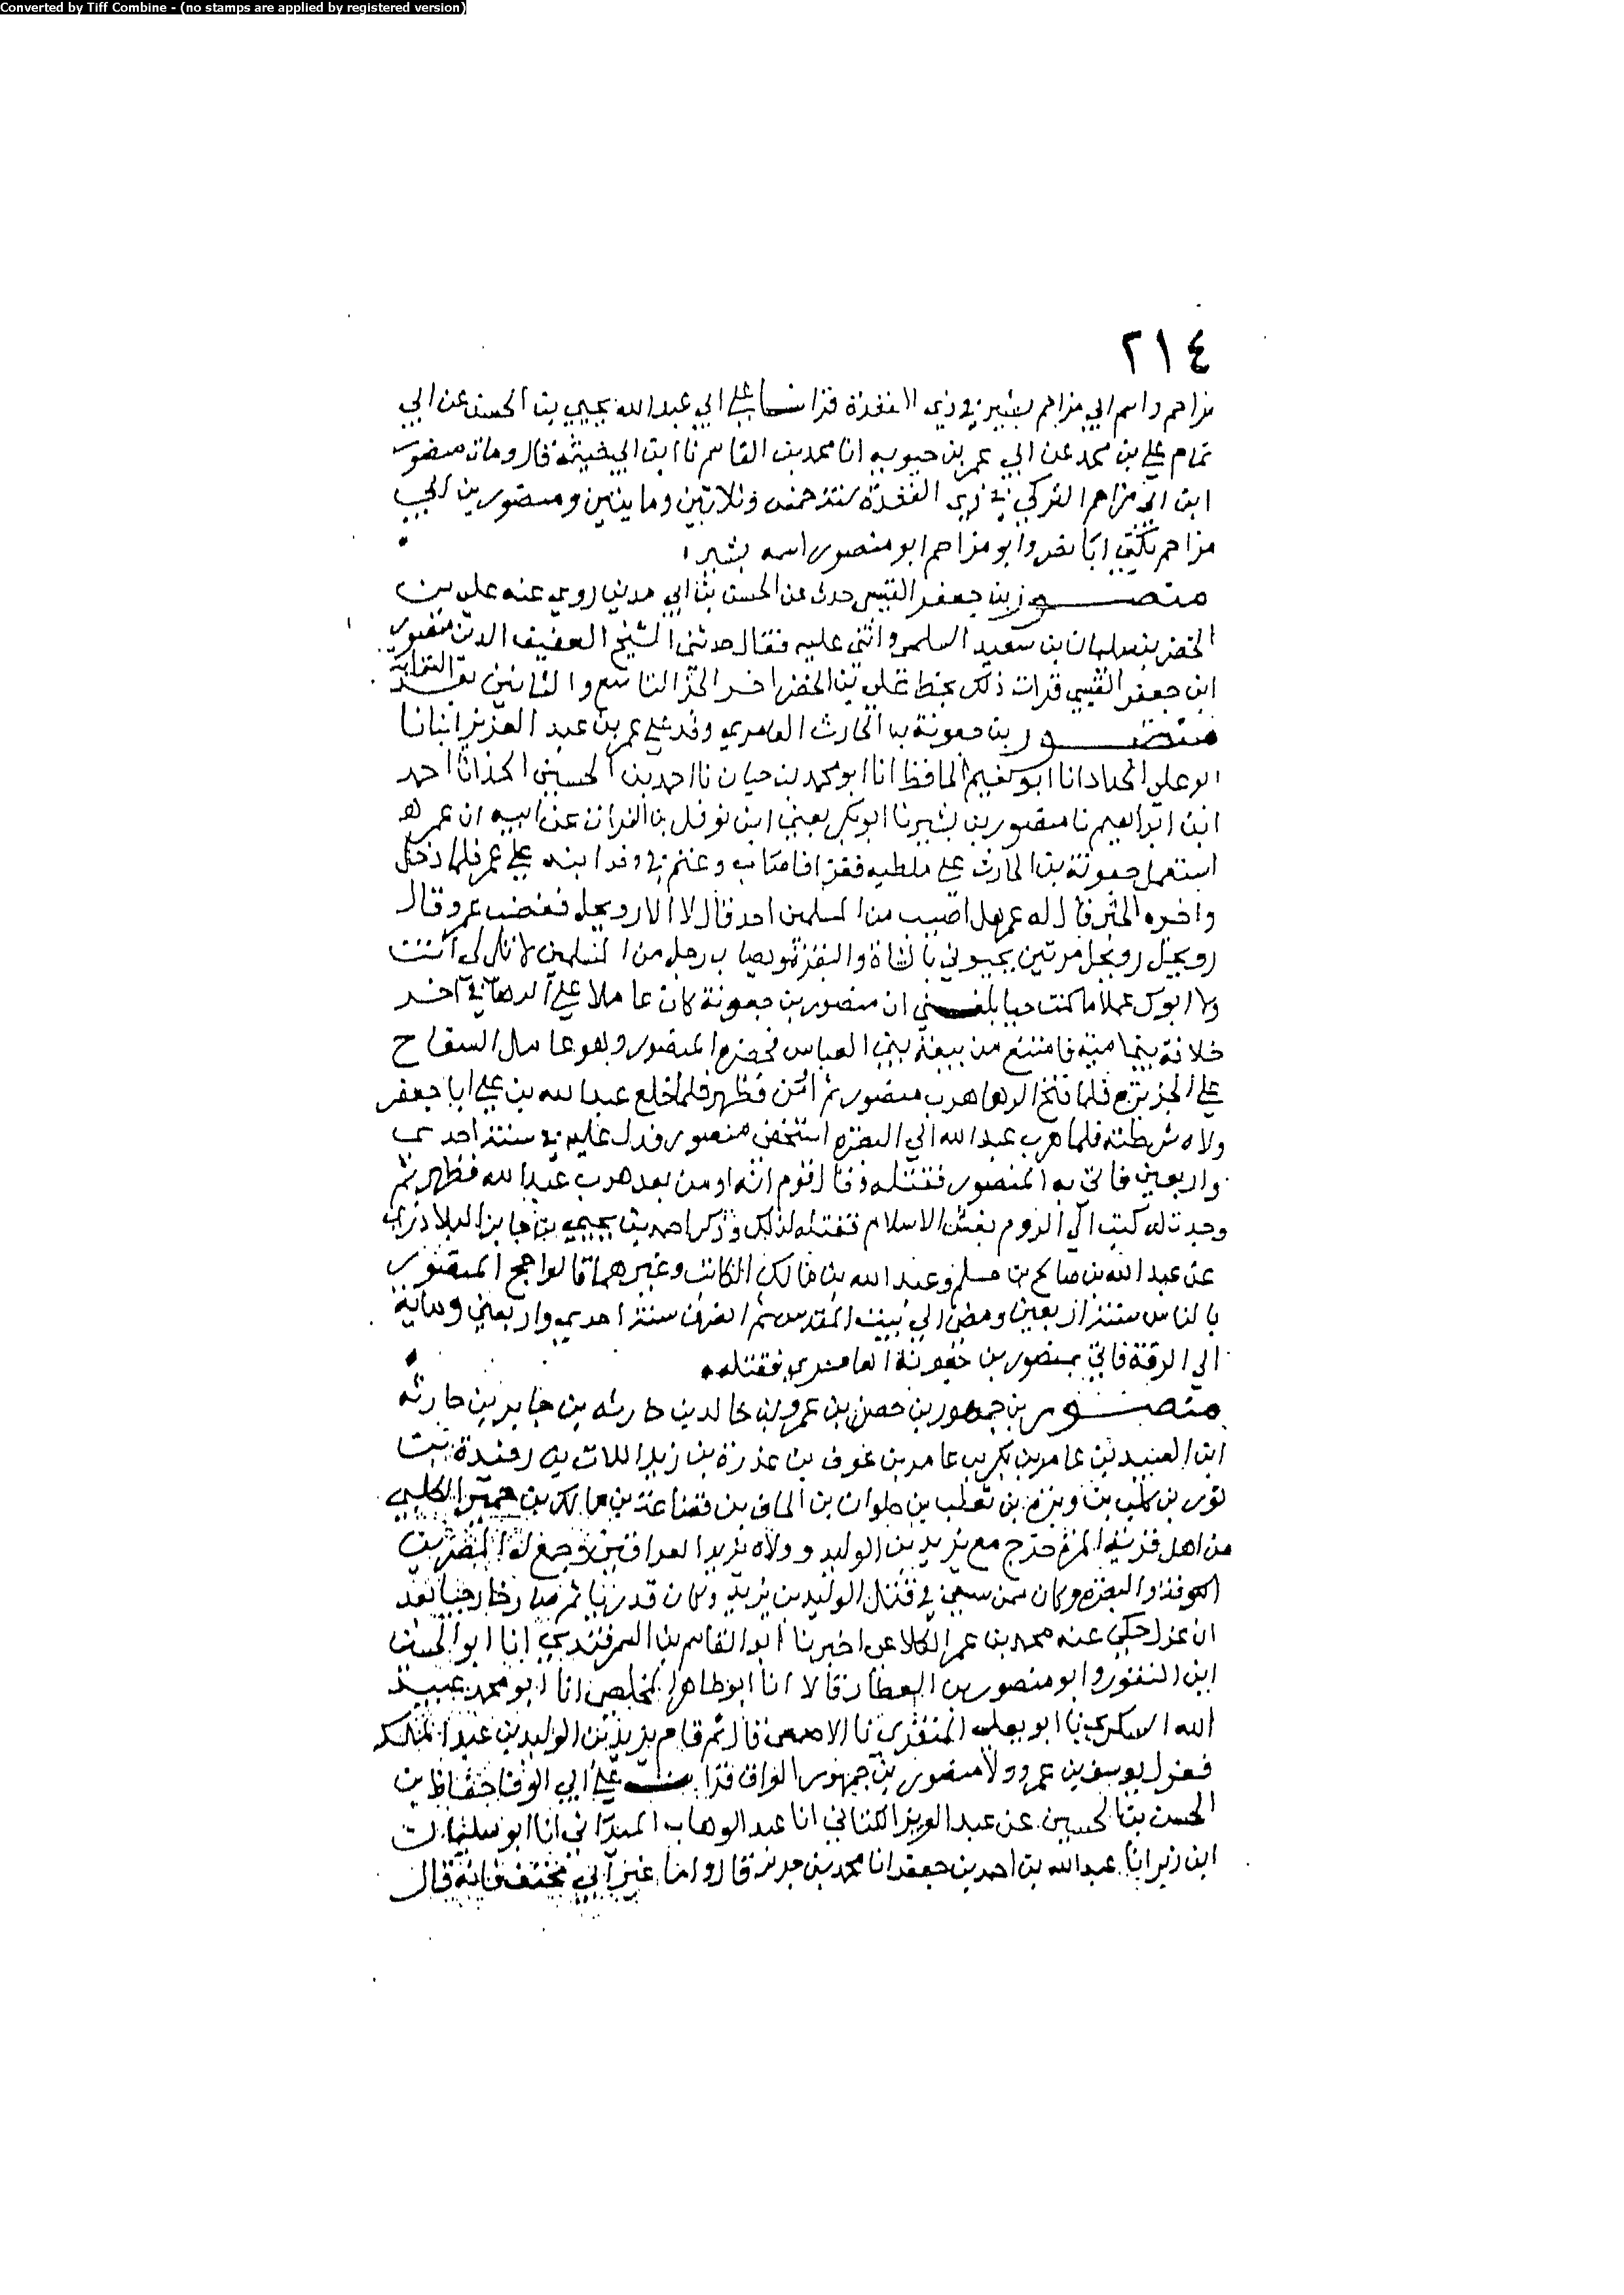 Converted by Tiff Combine - (no stamps are applied by registered version)
٢١٤
مزاحم واسم ابي مزاحم بشير في ذي القعدة قرات على ابي عبد الله يحيى بن الحسن عن ابي
تمام علي بن محمد عن ابي عمر بن حيويه انا محمد بن القاسم نا ابن ابي خيثمة قال ومات منصور
ابن ابي مزاحم التركي في ذي القعدة سنة خمس وثلاثين ومايتين ومنصور بن ابي
مزاحم يكنى ابا نصر وابو مزاحم ابو منصور اسمه بشير
منصور بن جعفر القيسي حدث عن الحسن بن ابي روى عنه علي بن
الخضر بن سليمان بن سعيد السلمي واثنى عليه فقال حدثني الشيخ العفيف الدين منصور
ابن جعفر القيسي قرات ذلك بخط علي بن الخضر اخر الجز التاسع والثمانين بعد
منصور بن جعونة بن الحارث العامري وفد على عمر بن عبد العزيز انبانا
ابو علي الحداد انا ابو نعيم الحافظ انا ابو محمد بن حيان نا احمد بن الحسين الحذا نا احمد
ابن ابراهيم نا منصور بن بشير نا ابو بكر يعني ابن نوفل بن الفرات عن ابيه ان عمر
استعمل جعونة بن الحارث على ملطيه فغزا فاصاب وغنم و وفد ابنه على عمر فلما دخل
واخبره الخبر قال له عمر هل اصيب من المسلمين احد قال لا الا رويجل فغضب عمر وقال
رويجل رويجل مرتين يجيوني بالشاة والبقرة ويصاب رجل من المسلمين لا تلي لي انت
ولا ابوك عملا ما كنت حيا بلغني ان منصور بن جعونة كان عاملا على الرها في آخر
خلافة بني امية فامتنع من بيعة بني العباس فحصره المنصور وهو عامل السفاح
على الجزيرة فلما فتح الرها هرب منصور ثم اُمّن فظهر فلما خلع عبد الله بن علي ابا جعفر
ولاه شرطته فلما هرب عبد الله الى البصرة استخفى منصور فدل عليه في سنة احدى
واربعين فاتي به المنصور فقتله وقال قوم انه اومن بعد هرب عبد الله فظهر ثم
وجدت له كتب الى الروم بغش الاسلام فقتله لذلك وذكر احمد بن يحيى بن جابر البلاذري
عن عبد الله بن صالح بن مسلم وعبد الله بن مالك الكاتب وغيرهما قالوا حج المنصور
بالناس سنة اربعين ومضى الى بيت المقدس ثم انصرف سنة احدى واربعين ومائة
الى الرقة فاتي بمنصور بن جعونة العامري فقتله
منصور بن جمهور بن حصن بن عمرو بن خالد بن حارثه بن جابر بن حارثه
ابن العبيد بن عامر بن بكر بن عامر بن عوف بن عذرة بن زيد اللات بن رفيدة بن
ثور بن كلب بن وبرة بن تغلب بن حلوان بن الحاف بن قضاعة بن مالك بن حمير الكلبي
من اهل قرية المزة خرج مع يزيد بن الوليد وولاه يزيد العراقين وجمع له المصرين
الكوفة والبصرة وكان ممن سعى في قتل الوليد بن يزيد وكان قدريا ثم صار خارجيا بعد
ان عزل حكى عنه محمد بن عمر الكلاعي اخبرنا ابو القاسم بن السمرقندي انا ابو الحسين
ابن النقور وابو منصور بن العطار قالا انا ابو طاهر المخلص انا ابو محمد عبيد
الله السكري نا ابو يعلى المنقري نا الاصمعي قال ثم قام يزيد بن الوليد بن عبد الملك
فعزل يوسف بن عمر وولا منصور بن جمهور العراق قرات على ابي الوفا حفاظ بن
الحسن بن الحسين عن عبد العزيز الكتاني انا عبد الوهاب الميداني انا ابو سليمان
ابن زبر انا عبد الله بن احمد بن جعفر انا محمد بن جرير قال واما غير ابي مخنف فانه قال